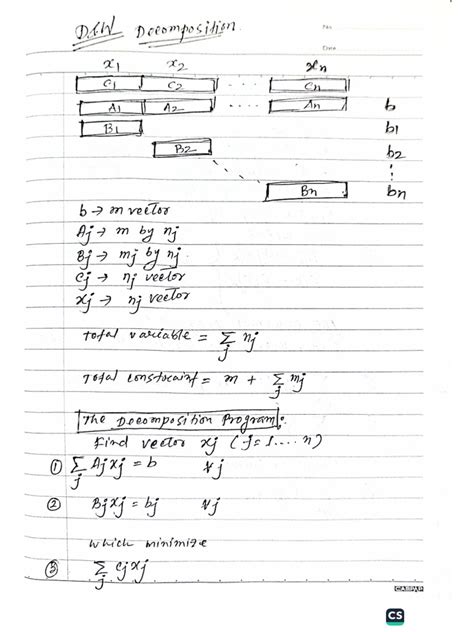 D&W Decomposition
No.
Date
x1 x2 xn
C1 C2 .... Cn
A1 A2 .... An b
B1 b1
B2 b2
⋮
Bn bn
b → m vector
Aj → m by nj
Bj → mj by nj
Cj → nj vector
xj → nj vector
Total variable = Σj nj
Total constraint = m + Σj mj
The Decomposition Program:
Find vector xj (j=1....n)
① Σj Ajxj = b ∀j
② Bjxj = bj ∀j
which minimize
③ Σj Cjxj
CASPAP
CS